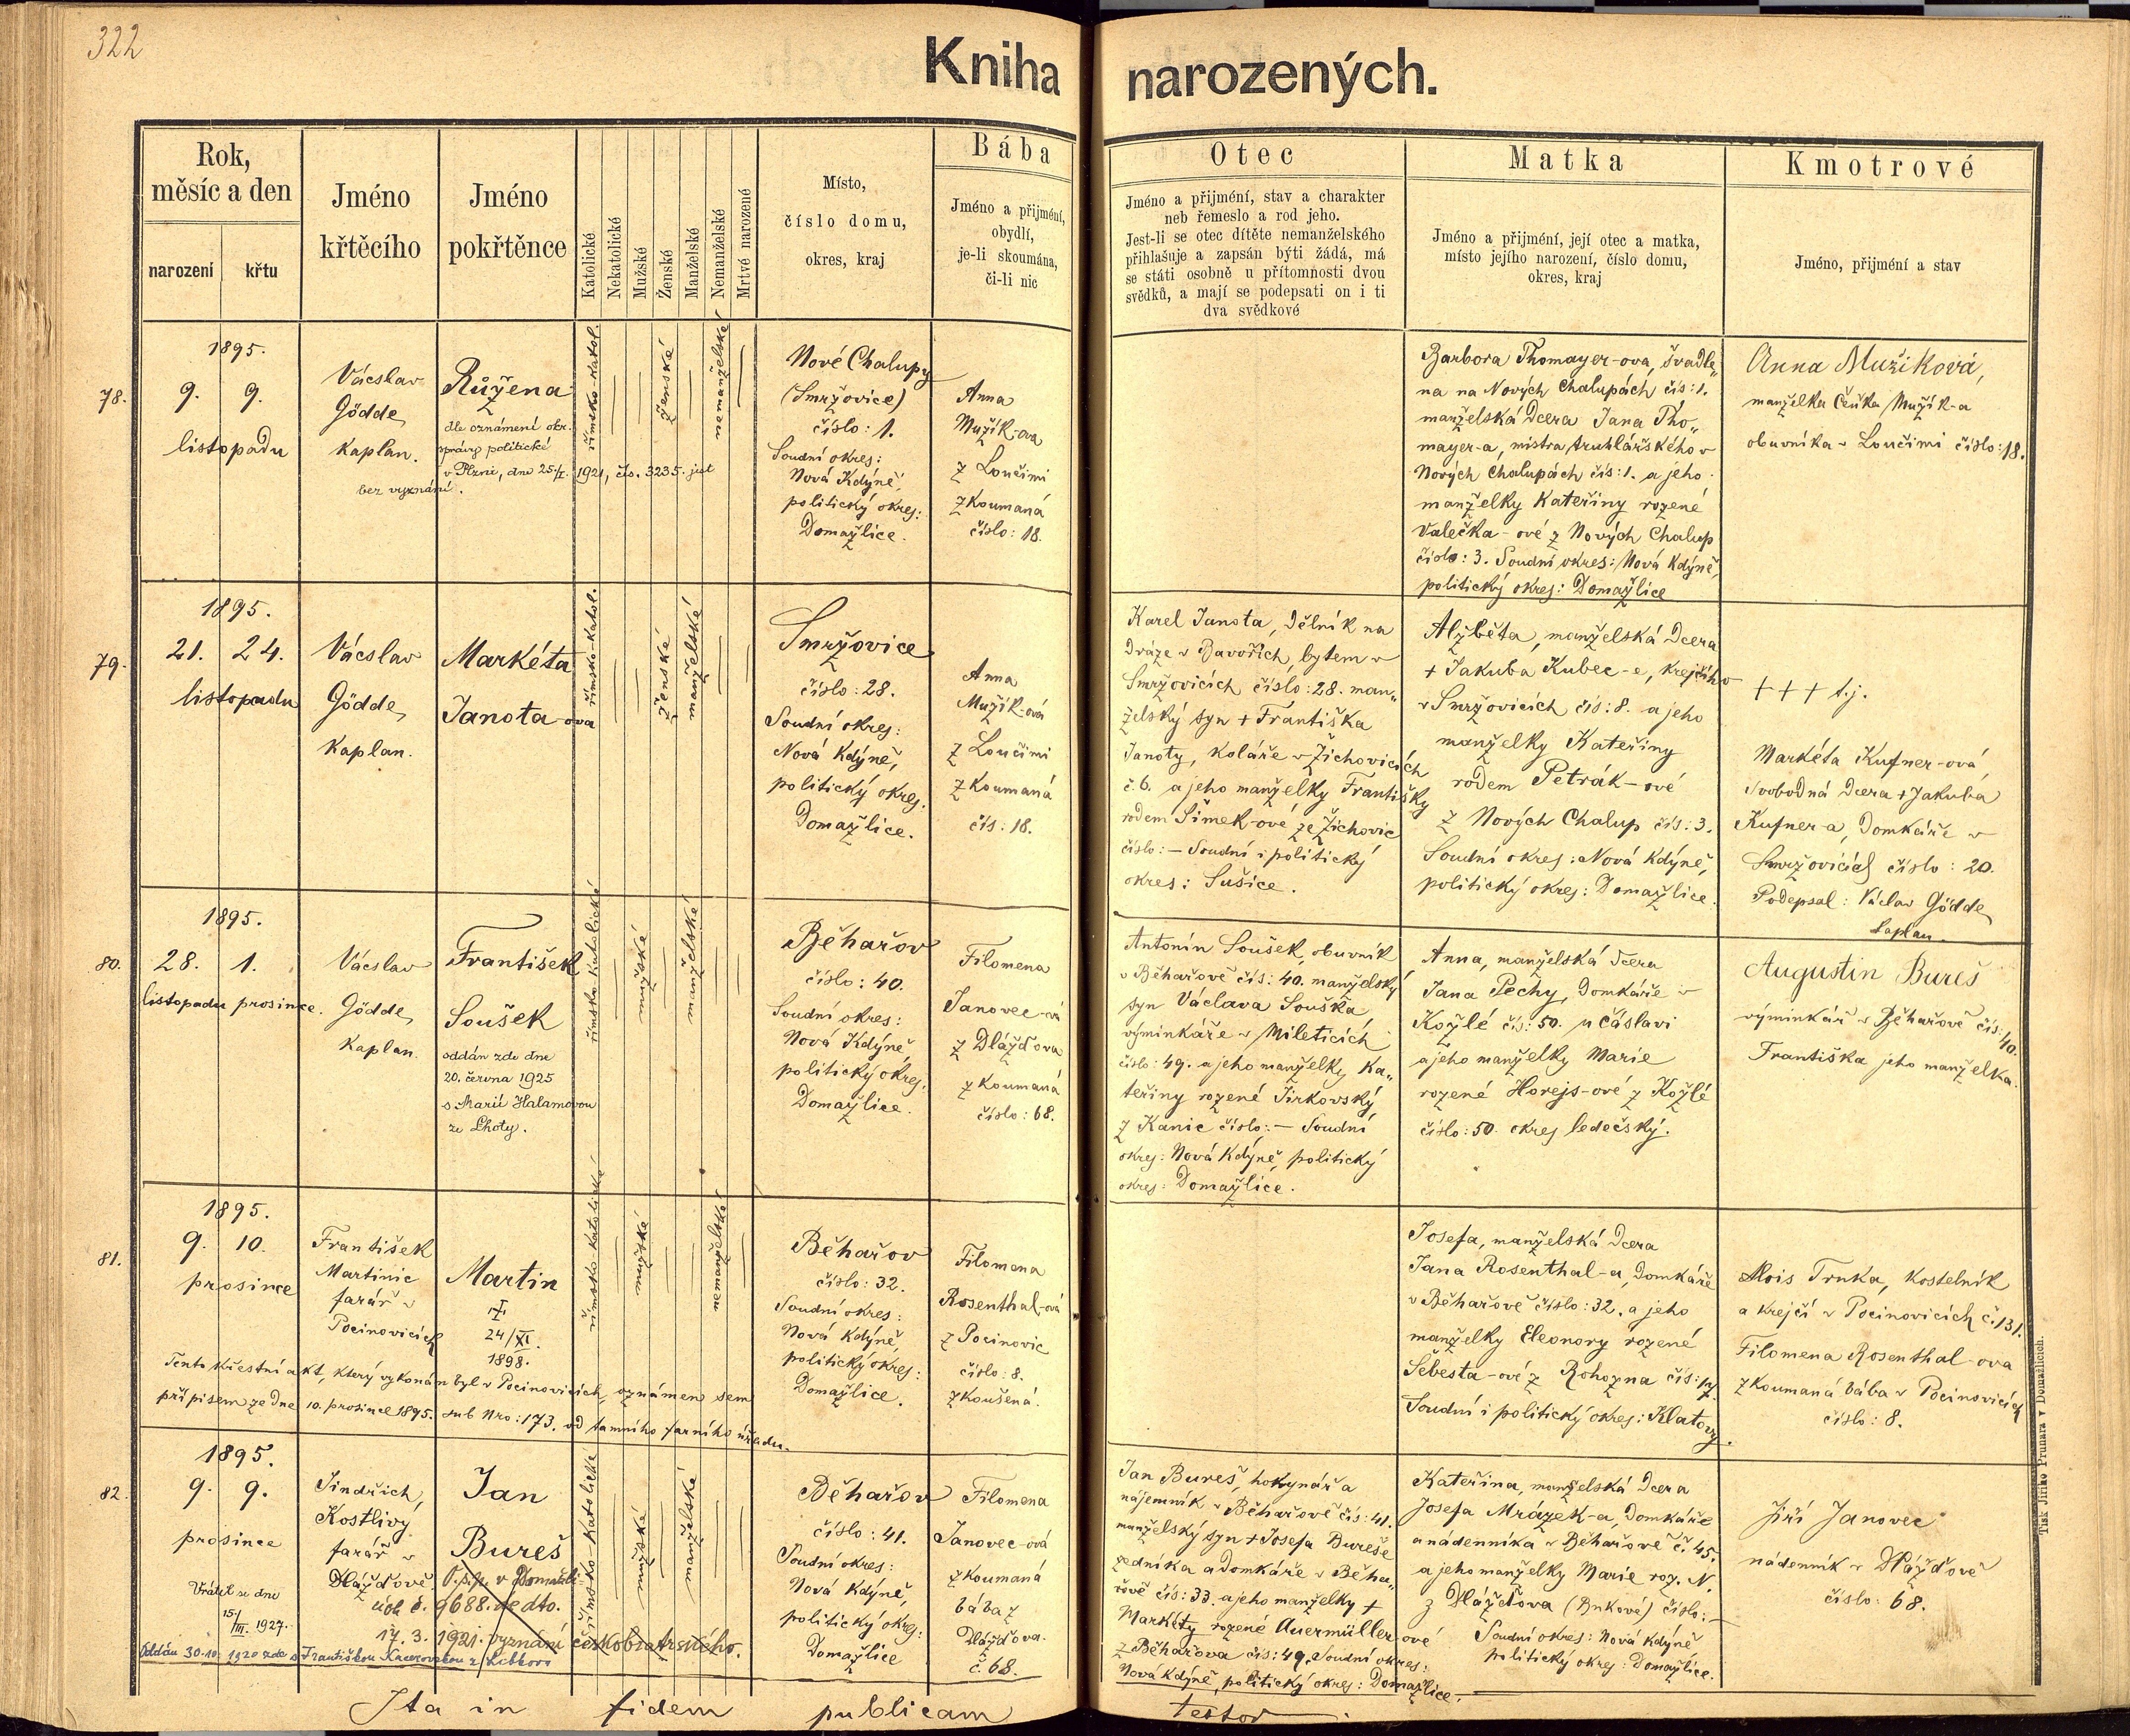 322
Kniha narozených.
Rok,
měsíc a den
narození
křtu
Jméno
křtěcího
Jméno
pokřtěnce
Katolické
Nekatolické
Mužské
Ženské
Manželské
Nemanželské
Mrtvé narozené
Místo,
číslo domu,
okres, kraj
Bába
Jméno a přijmení,
obydlí,
je-li skoumána,
či-li nic
Otec
Jméno a přijmení, stav a charakter
neb řemeslo a rod jeho.
Jest-li se otec dítěte nemanželského
přihlašuje a zapsán býti žádá, má
se státi osobně u přítomnosti dvou
svědků, a mají se podepsati on i ti
dva svědkové
Matka
Jméno a přijmení, její otec a matka,
místo jejího narození, číslo domu,
okres, kraj
Kmotrové
Jméno, přijmení a stav
78.
1895.
9. 9.
listopadu
Vácslav
Gödde,
kaplan.
Růžena
dle oznámení okr.
správy politické
v Plzni, dne 25/I. 1921, čís. 3235. jest
bez vyznání.
římsko-katol.
ženské
nemanželské
Nové Chalupy
(Smržovice)
číslo: 1.
Soudní okres:
Nová Kdýně,
politický okres:
Domažlice.
Anna
Mužík-ova
z Loučimi
zkoumaná
číslo: 18.
Barbora Thomayer-ova, švadle„
na na Nových Chalupách čís: 1.
manželská dcera Jana Tho„
mayer-a, mistra truhlářského v
Nových Chalupách čís: 1. a jeho
manželky Kateřiny rozené
Valečka-ové z Nových Chalup
číslo: 3. Soudní okres: Nová Kdýně,
politický okres: Domažlice
Anna Mužiková,
manželka Čeňka Mužík-a
obuvníka v Loučimi číslo: 18.
79.
1895.
21. 24.
listopadu
Vácslav
Gödde,
kaplan.
Markéta
Janota-ova
římsko-katol.
ženské
manželské
Smržovice
číslo: 28.
Soudní okres:
Nová Kdýně,
politický okres:
Domažlice.
Anna
Mužík-ová
z Loučimi
zkoumaná
čís: 18.
Karel Janota, dělník na
dráze v Bavořích, bytem v
Smržovicích číslo: 28. man„
želský syn + Františka
Janoty, koláře v Žichovicích
č. 6. a jeho manželky Františky
rodem Šimek-ové ze Žichovic
číslo: – Soudní i politický
okres: Sušice.
Alžběta, manželská dcera
+ Jakuba Kubec-e, krejčího
v Smržovicích čís: 8. a jeho
manželky Kateřiny
rodem Petrák-ové
z Nových Chalup čís: 3.
Soudní okres: Nová Kdýně,
politický okres: Domažlice.
+++ t.j.
Markéta Kufner-ová,
svobodná dcera + Jakuba
Kufner-a, domkáře v
Smržovicích číslo: 20.
Podepsal: Václav Gödde,
kaplan.
80.
1895.
28. 1.
listopadu prosince.
Vácslav
Gödde,
kaplan.
František
Soušek
oddán zde dne
20. června 1925
s Marií Halamovou
ze Lhoty.
římsko-katolické
mužské
manželské
Běhařov
číslo: 40.
Soudní okres:
Nová Kdýně,
politický okres:
Domažlice.
Filomena
Janovec-vá
z Dlážďova
zkoumaná
číslo: 68.
Antonín Soušek, obuvník
v Běhařově čís: 40. manželský
syn Václava Souška,
výminkáře v Mileticích
číslo: 49. a jeho manželky Ka„
teřiny rozené Jirkovský
z Kanic číslo: – Soudní
okres: Nová Kdýně, politický
okres: Domažlice.
Anna, manželská dcera
Jana Pechy, domkáře v
Kožlé čís: 50. u Čáslavi
a jeho manželky Marie
rozené Horejs-ové z Kožlé
číslo: 50. okres ledečský.
Augustin Bureš
výminkář v Běhařově čís: 40.
Františka jeho manželka.
81.
1895.
9. 10.
prosince
František
Martinic
farář v
Pocinovicích
Martin
24/XI.
1898.
římsko-katolické
mužské
nemanželské
Tento křestní akt, který vykonán byl v Pocinovicích, oznámen sem
přípisem ze dne 10. prosince 1895. sub Nro: 173. od tamního farního úřadu.
Běhařov
číslo: 32.
Soudní okres:
Nová Kdýně,
politický okres:
Domažlice.
Filomena
Rosenthal-ová
z Pocinovic
číslo: 8.
zkoušená.
Josefa, manželská dcera
Jana Rosenthal-a, domkáře
v Běhařově číslo: 32. a jeho
manželky Eleonory rozené
Šebesta-ové z Rohozna čís: 14.
Soudní i politický okres: Klatovy.
Alois Trnka, kostelník
a krejčí v Pocinovicích č. 131.
Filomena Rosenthal-ova
zkoumaná bába v Pocinovicích
číslo: 8.
82.
1895.
9. 9.
prosince
Jindřich
Kostlivy
farář v
Dlážďově.
Jan
Bureš
O.s.p. v Domažli-
cích č. 9688. de dto.
17. 3. 1921. vyznání českobratrského.
Vrátil se dne
15/III. 1927.
Oddán 30.10. 1920 zde s Františkou
římsko-katolické
mužské
manželské
Běhařov
číslo: 41.
Soudní okres:
Nová Kdýně,
politický okres:
Domažlice
Filomena
Janovec-ová
zkoumaná
bába z
Dlážďova.
č. 68.
Jan Bureš, hokynář a
nájemník v Běhařově čís: 41.
manželský syn + Josefa Bureše
zedníka a domkáře v Běha„
řově čís: 33. a jeho manželky +
Markéty rozené Auermüller-ové
z Běhařova čís: 49. Soudní okres:
Nová Kdýně, politický okres: Domažlice.
Kateřina, manželská dcera
Josefa Mrázek-a, domkáře
a nádenníka v Běhařově č. 45.
a jeho manželky Marie roz. N.
z Dlážďova (Buková) číslo: –
Soudní okres: Nová Kdýně
politický okres: Domažlice.
Jiří Janovec
nádenník v Dlážďově
číslo: 68.
Ita in fidem publicam testor.
Tisk Jiřího Prunara v Domažlicích.